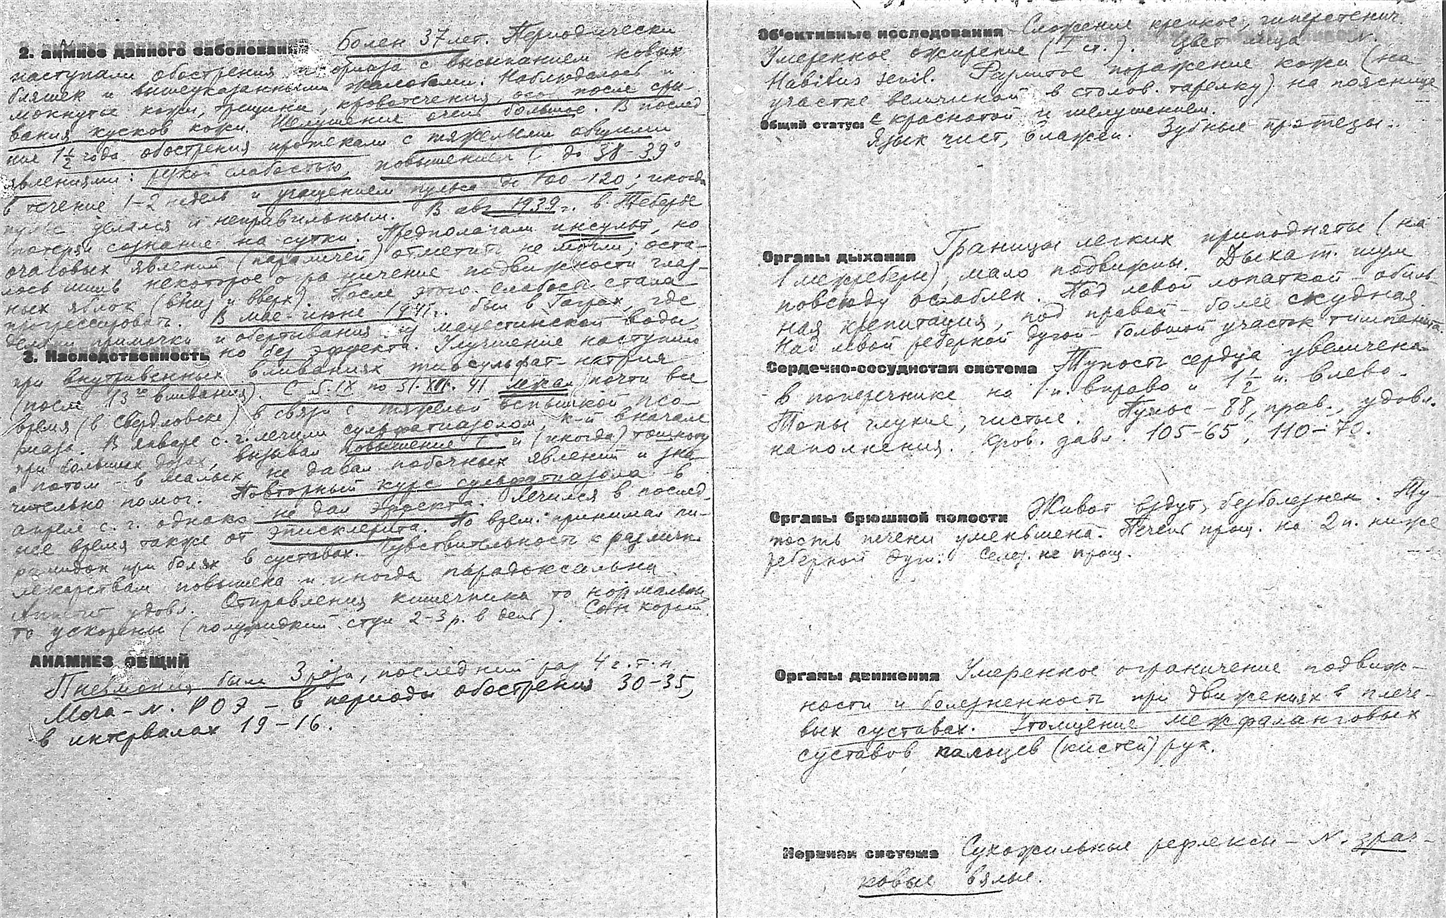 2. анамнез данного заболевания Болен 37 лет. Периодически
наступали обострения псориаза с высыпанием новых
бляшек и вышеуказанными жалобами. Наблюдалось и
мокнутие кожи, трещины, кровотечения особ. после сры-
вания кусков кожи. Шелушение очень большое. В послед
ние 1½ года обострения протекали с тяжелыми общими
явлениями: резкой слабостью, повышением t° до 38–39°
в течение 1–2 недель и учащением пульса до 100–120; иногда
пульс делался и неправильным. В авг. 1939 г. в Теберде
потерял сознание на сутки. Предполагали инсульт, но
очаговых явлений (параличей) отметить не могли; оста-
лось лишь некоторое ограничение подвижности глаз-
ных яблок (вниз и вверх). После этого слабость стала
прогрессировать. В мае–июне 1941 г. был в Гаграх, где
делали примочки и обертывания из мацестинской воды,
3. Наследственность но без эффекта. Улучшение наступило
при внутривенных вливаниях тиосульфат-натрия
(после 13го вливания). С 5.IX по 31.XII. 41 лежал почти все
время (в Свердловске) в связи с тяжелой вспышкой псо-
риаза. В январе с.г. лечили сульфатиазолом, к-й вначале
при больших дозах, вызывал повышение t° и (иногда) тошноту
а потом – в малых, не давал побочных явлений и зна-
чительно помог. Повторный курс сульфатиазола в
апреле с.г. однако не дал эффекта. Лечился в послед-
нее время также от эписклерита. По врем. принимал пи-
рамидон при болях в суставах. Чувствительность к различн.
лекарствам повышена и иногда парадоксальна.
Аппетит удовл. Отправления кишечника то нормальны,
то ускорены (полужидкий стул 2–3 р. в день). Сон корот.
АНАМНЕЗ ОБЩИЙ
Пневмония была 3 раза, последний раз 4 г. т. н.
Моча – N. РОЭ – в периоды обострения 30–35,
в интервалах 19–16.
Об'ективные исследования Сложение крепкое, гиперстенич.
Умеренное ожирение (I ст.). Цвет лица N.
Habitus senil. Разлитое поражение кожи (на
участке величиной в столов. тарелку) на пояснице
Общий статус: с краснотой и шелушением.
Язык чист, влажен. Зубные протезы.
Органы дыхания Границы легких приподняты (на
1 межребер.), мало подвижны. Дыхат. шум
повсюду ослаблен. Под левой лопаткой – обиль
ная крепитация, под правой – более скудная.
Над левой реберной дугой большой участок тимпанита.
Сердечно-сосудистая система Тупость сердца увеличена
в поперечнике на 1 п. вправо и 1½ п. влево.
Тоны глухие, чистые. Пульс – 88, прав., удовл.
наполнения. Кров. давл. 105–65, 110–70.
Органы брюшной полости Живот вздут, безболезнен. Ту-
пость печени уменьшена. Печень прощ. на 2 п. ниже
реберной дуги. Селез. не прощ.
Органы движения Умеренное ограничение подвиж-
ности и болезненность при движениях в плече-
вых суставах. Утолщение межфаланговых
суставов пальцев (кистей) рук.
Нервная система Сухожильные рефлексы – N. зрач-
ковые вялые.